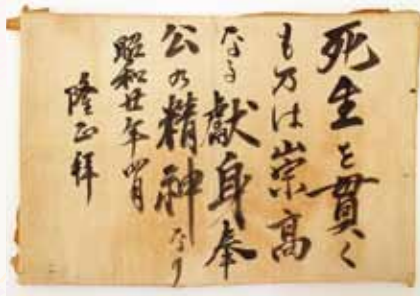 死生を貫く
ものは崇高
なる献身奉
公の精神なり
昭和廿年四月
隆正拝